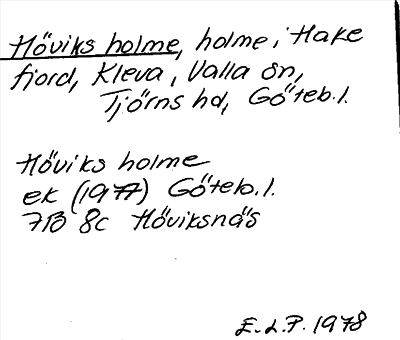 Höviks holme, holme i Hake
fjord, Kleva, Valla ön,
Tjörns hd, Göteb.l.
Höviks holme
ek (1977) Göteb.l.
7B 8c Höviksnäs
E.L.P. 1978